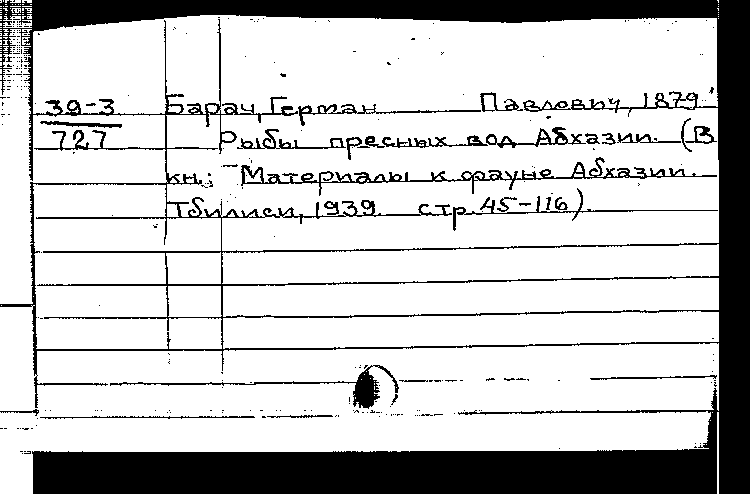 39-3 Барач, Герман Павлович, 1879
727 Рыбы пресных вод Абхазии. (В
кн.: Материалы к фауне Абхазии.
Тбилиси, 1939 стр. 45-116).